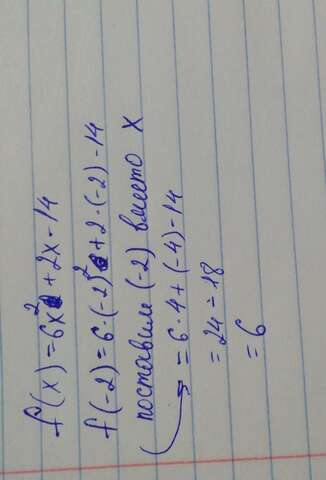 f'(x) = 6x² + 2x - 14
f(-2) = 6·(-2)² + 2·(-2) - 14
поставили (-2) вместо x
= 6·4 + (-4) - 14
= 24 - 18
= 6